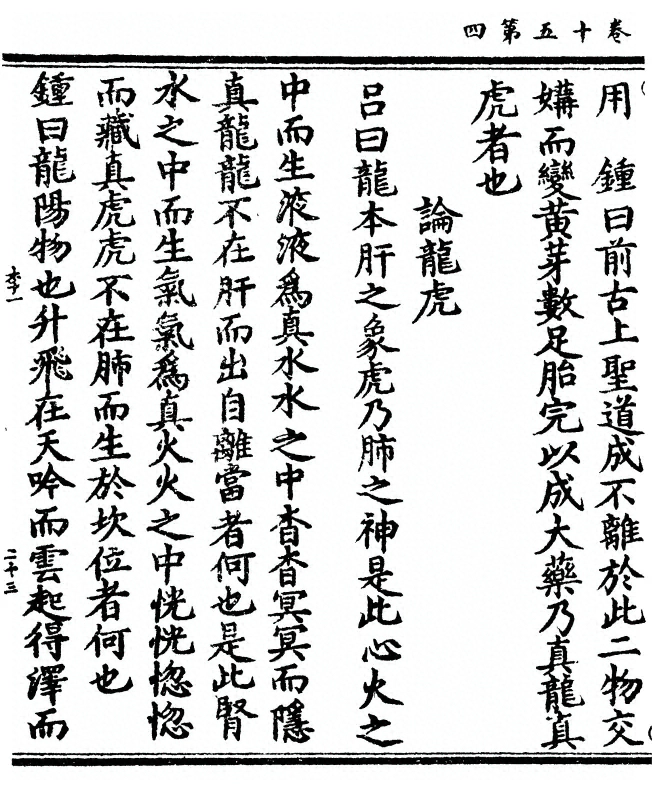 卷十五第四
用　鍾曰前古上聖道成不離於此二物交
媾而變黃芽數足胎完以成大藥乃真龍真
虎者也
論龍虎
呂曰龍本肝之象虎乃肺之神是此心火之
中而生液液爲真水水之中杳杳冥冥而隱
真龍龍不在肝而出自離當者何也是此腎
水之中而生氣氣爲真火火之中恍恍惚惚
而藏真虎虎不在肺而生於坎位者何也
鍾曰龍陽物也升飛在天吟而雲起得澤而
二十三